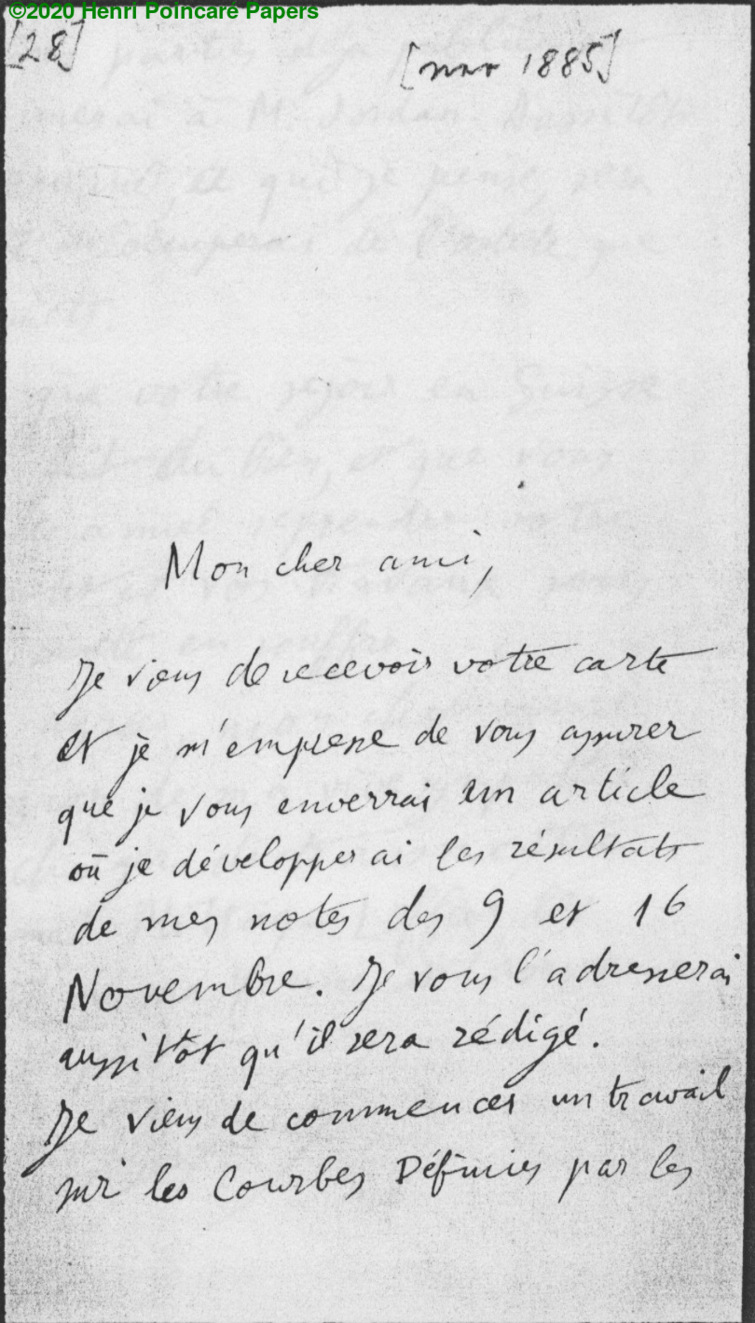 ©2020 Henri Poincaré Papers
[28]
[nov 1885]
Mon cher ami,
Je viens de recevoir votre carte
et je m'empresse de vous assurer
que je vous enverrai un article
où je développerai les résultats
de mes notes des 9 et 16
Novembre. Je vous l'adresserai
aussitôt qu'il sera rédigé.
Je viens de commencer un travail
sur les Courbes Définies par les